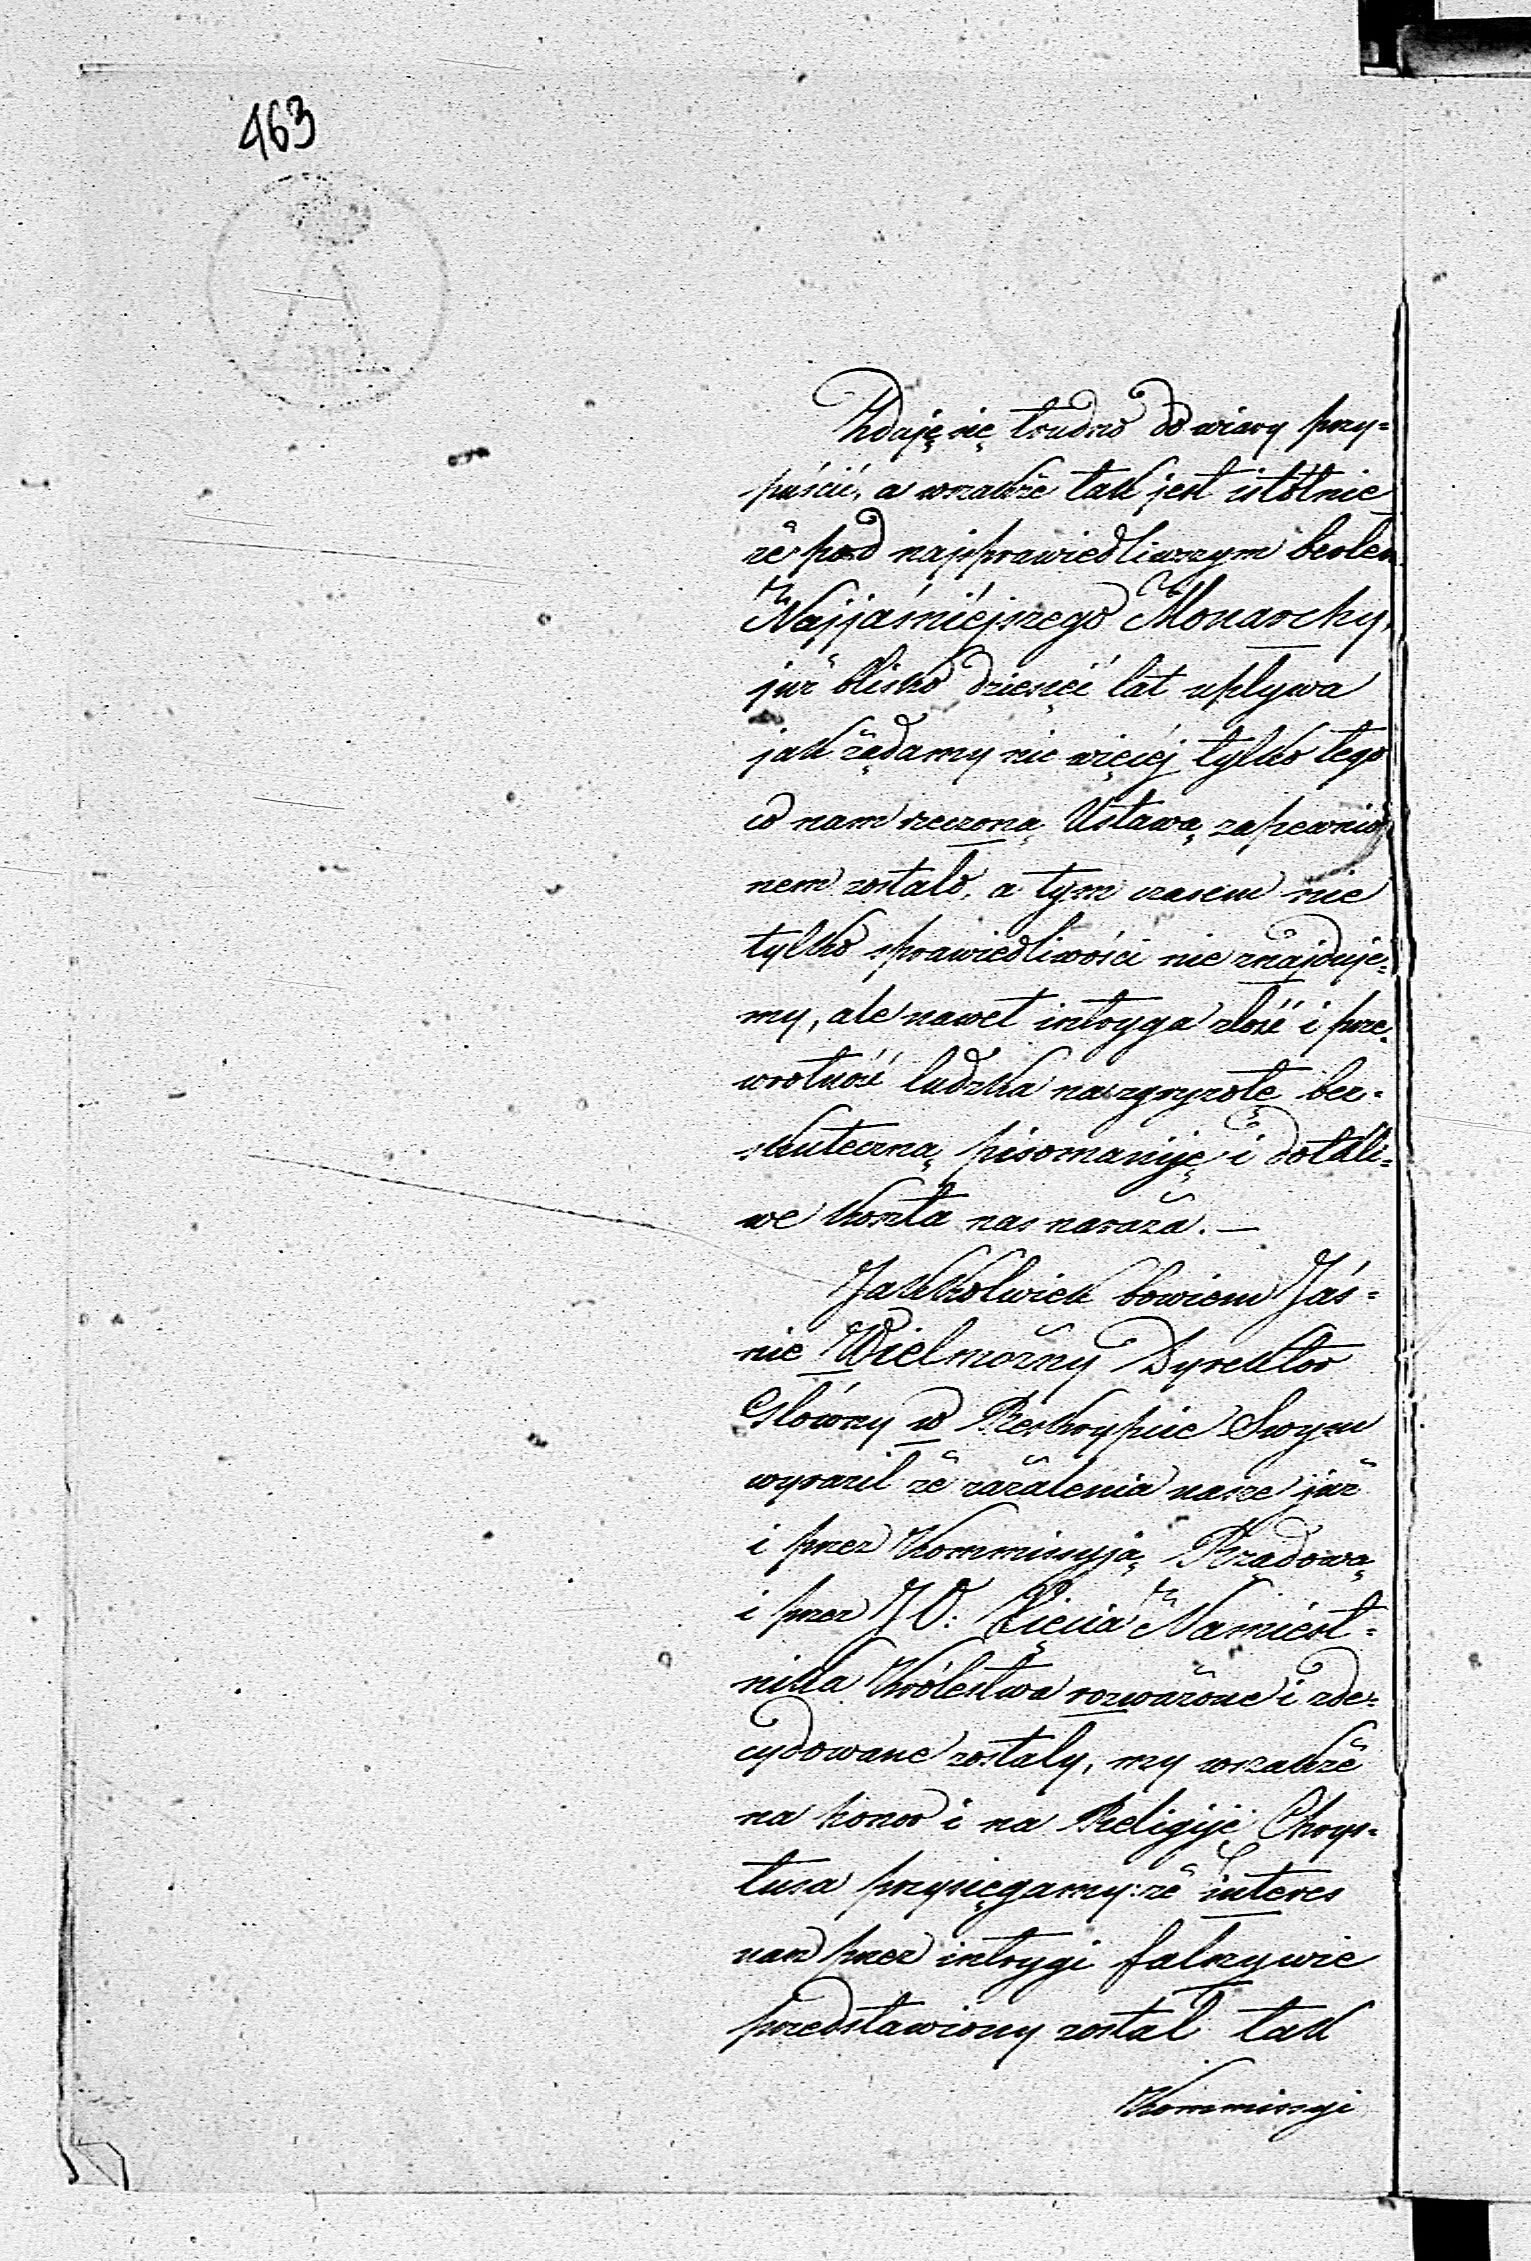 463
Zdaję się trudno do wiary przy=
puścić, a wszakże tak jest istotnie
że pod najsprawiedliwszym berłem
Najjaśniéjszego Monarchy,
już blisko dziesięć lat upływa
jak żądamy nic więcéj tylko tego
co nam rzeczoną Ustawą zapewnio
nem zostało, a tym czasem nie
tylko sprawiedliwości nie znajduje=
my, ale nawet intryga złość i prze
wrotność ludzka na zgryzotę bez=
skuteczną pisomaniję i dotkli=
we koszta nas naraża. —
Jakkolwiek bowiem Jaś=
nie Wielmożny Dyrektor
Główny w Reskrypcie Swym
wyraził że zażalenia nasze już
i przez Kommissyją Rządową
i przez J O. Xięcia Namiest=
nika Królestwa rozważone i zde=
cydowane zostały, my wszakże
na honor i na Religiję Chrys=
tusa przysięgamy: że interes
nasz przez intrygi fałszywie
przedstawiony został tak
Kommissyi